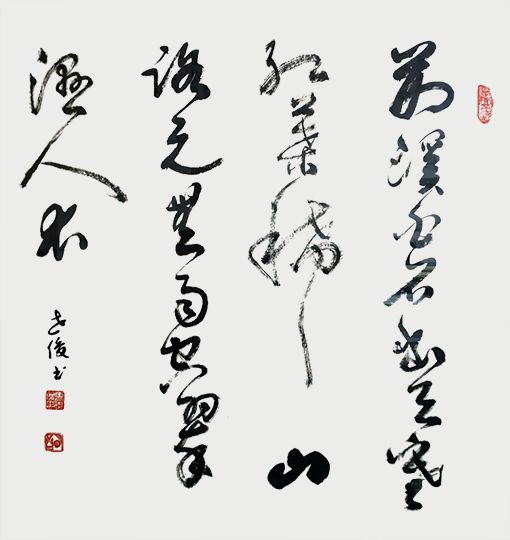 荆溪白石出天寒
红葉稀山
路元無雨空翠
濕人衣
俊书